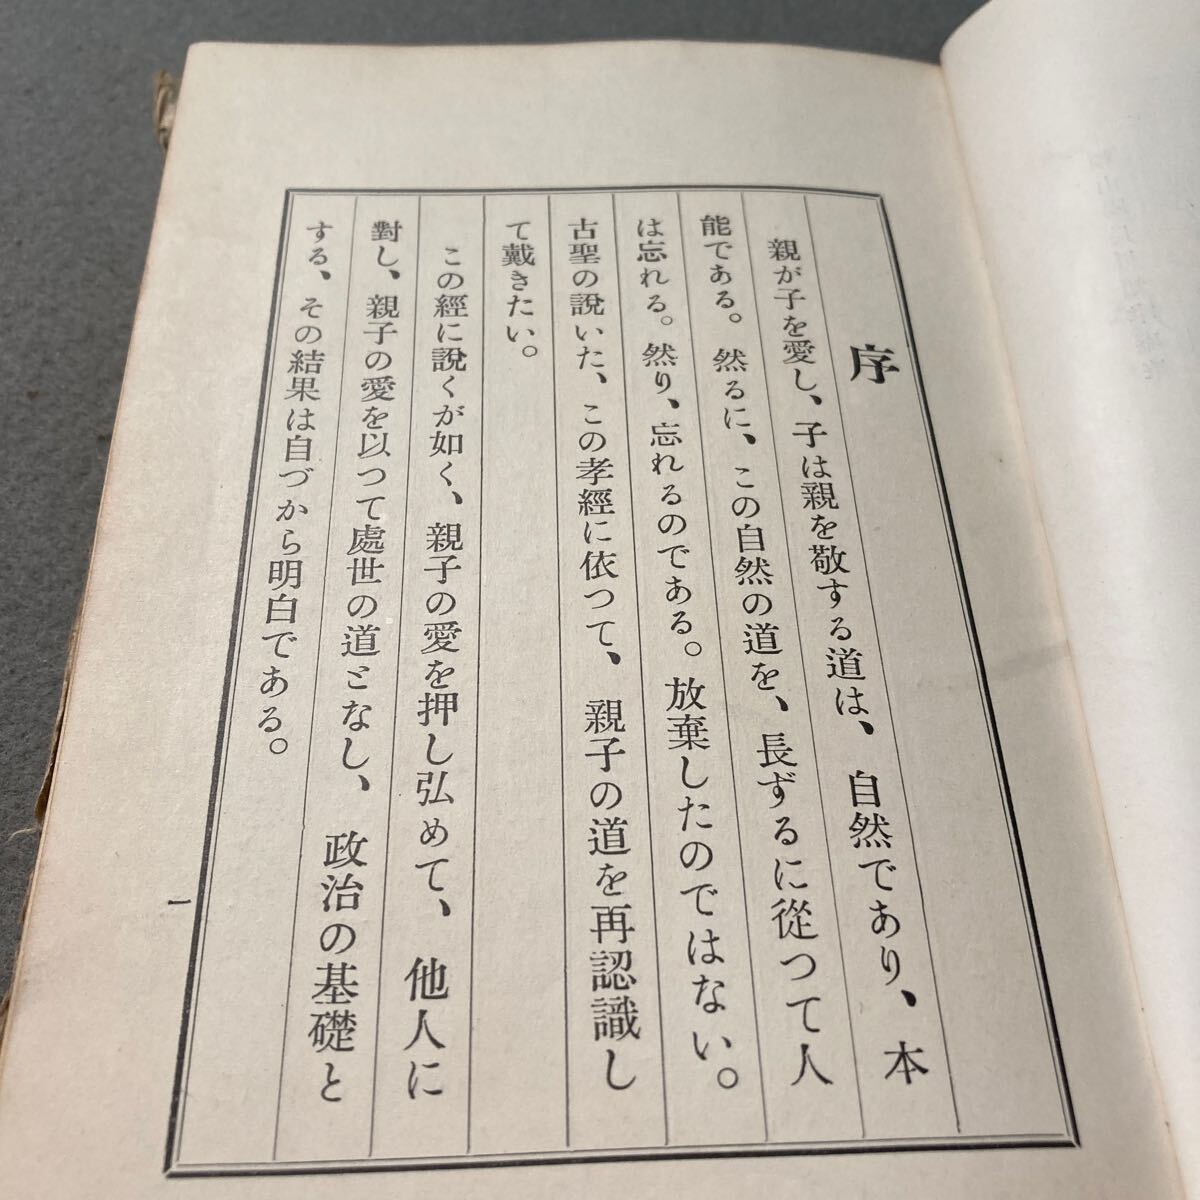 序
親が子を愛し、子は親を敬する道は、自然であり、本
能である。然るに、この自然の道を、長ずるに從つて人
は忘れる。然り、忘れるのである。放棄したのではない。
古聖の說いた、この孝經に依つて、親子の道を再認識し
て戴きたい。
この經に說くが如く、親子の愛を押し弘めて、他人に
對し、親子の愛を以つて處世の道となし、政治の基礎と
する、その結果は自づから明白である。
一